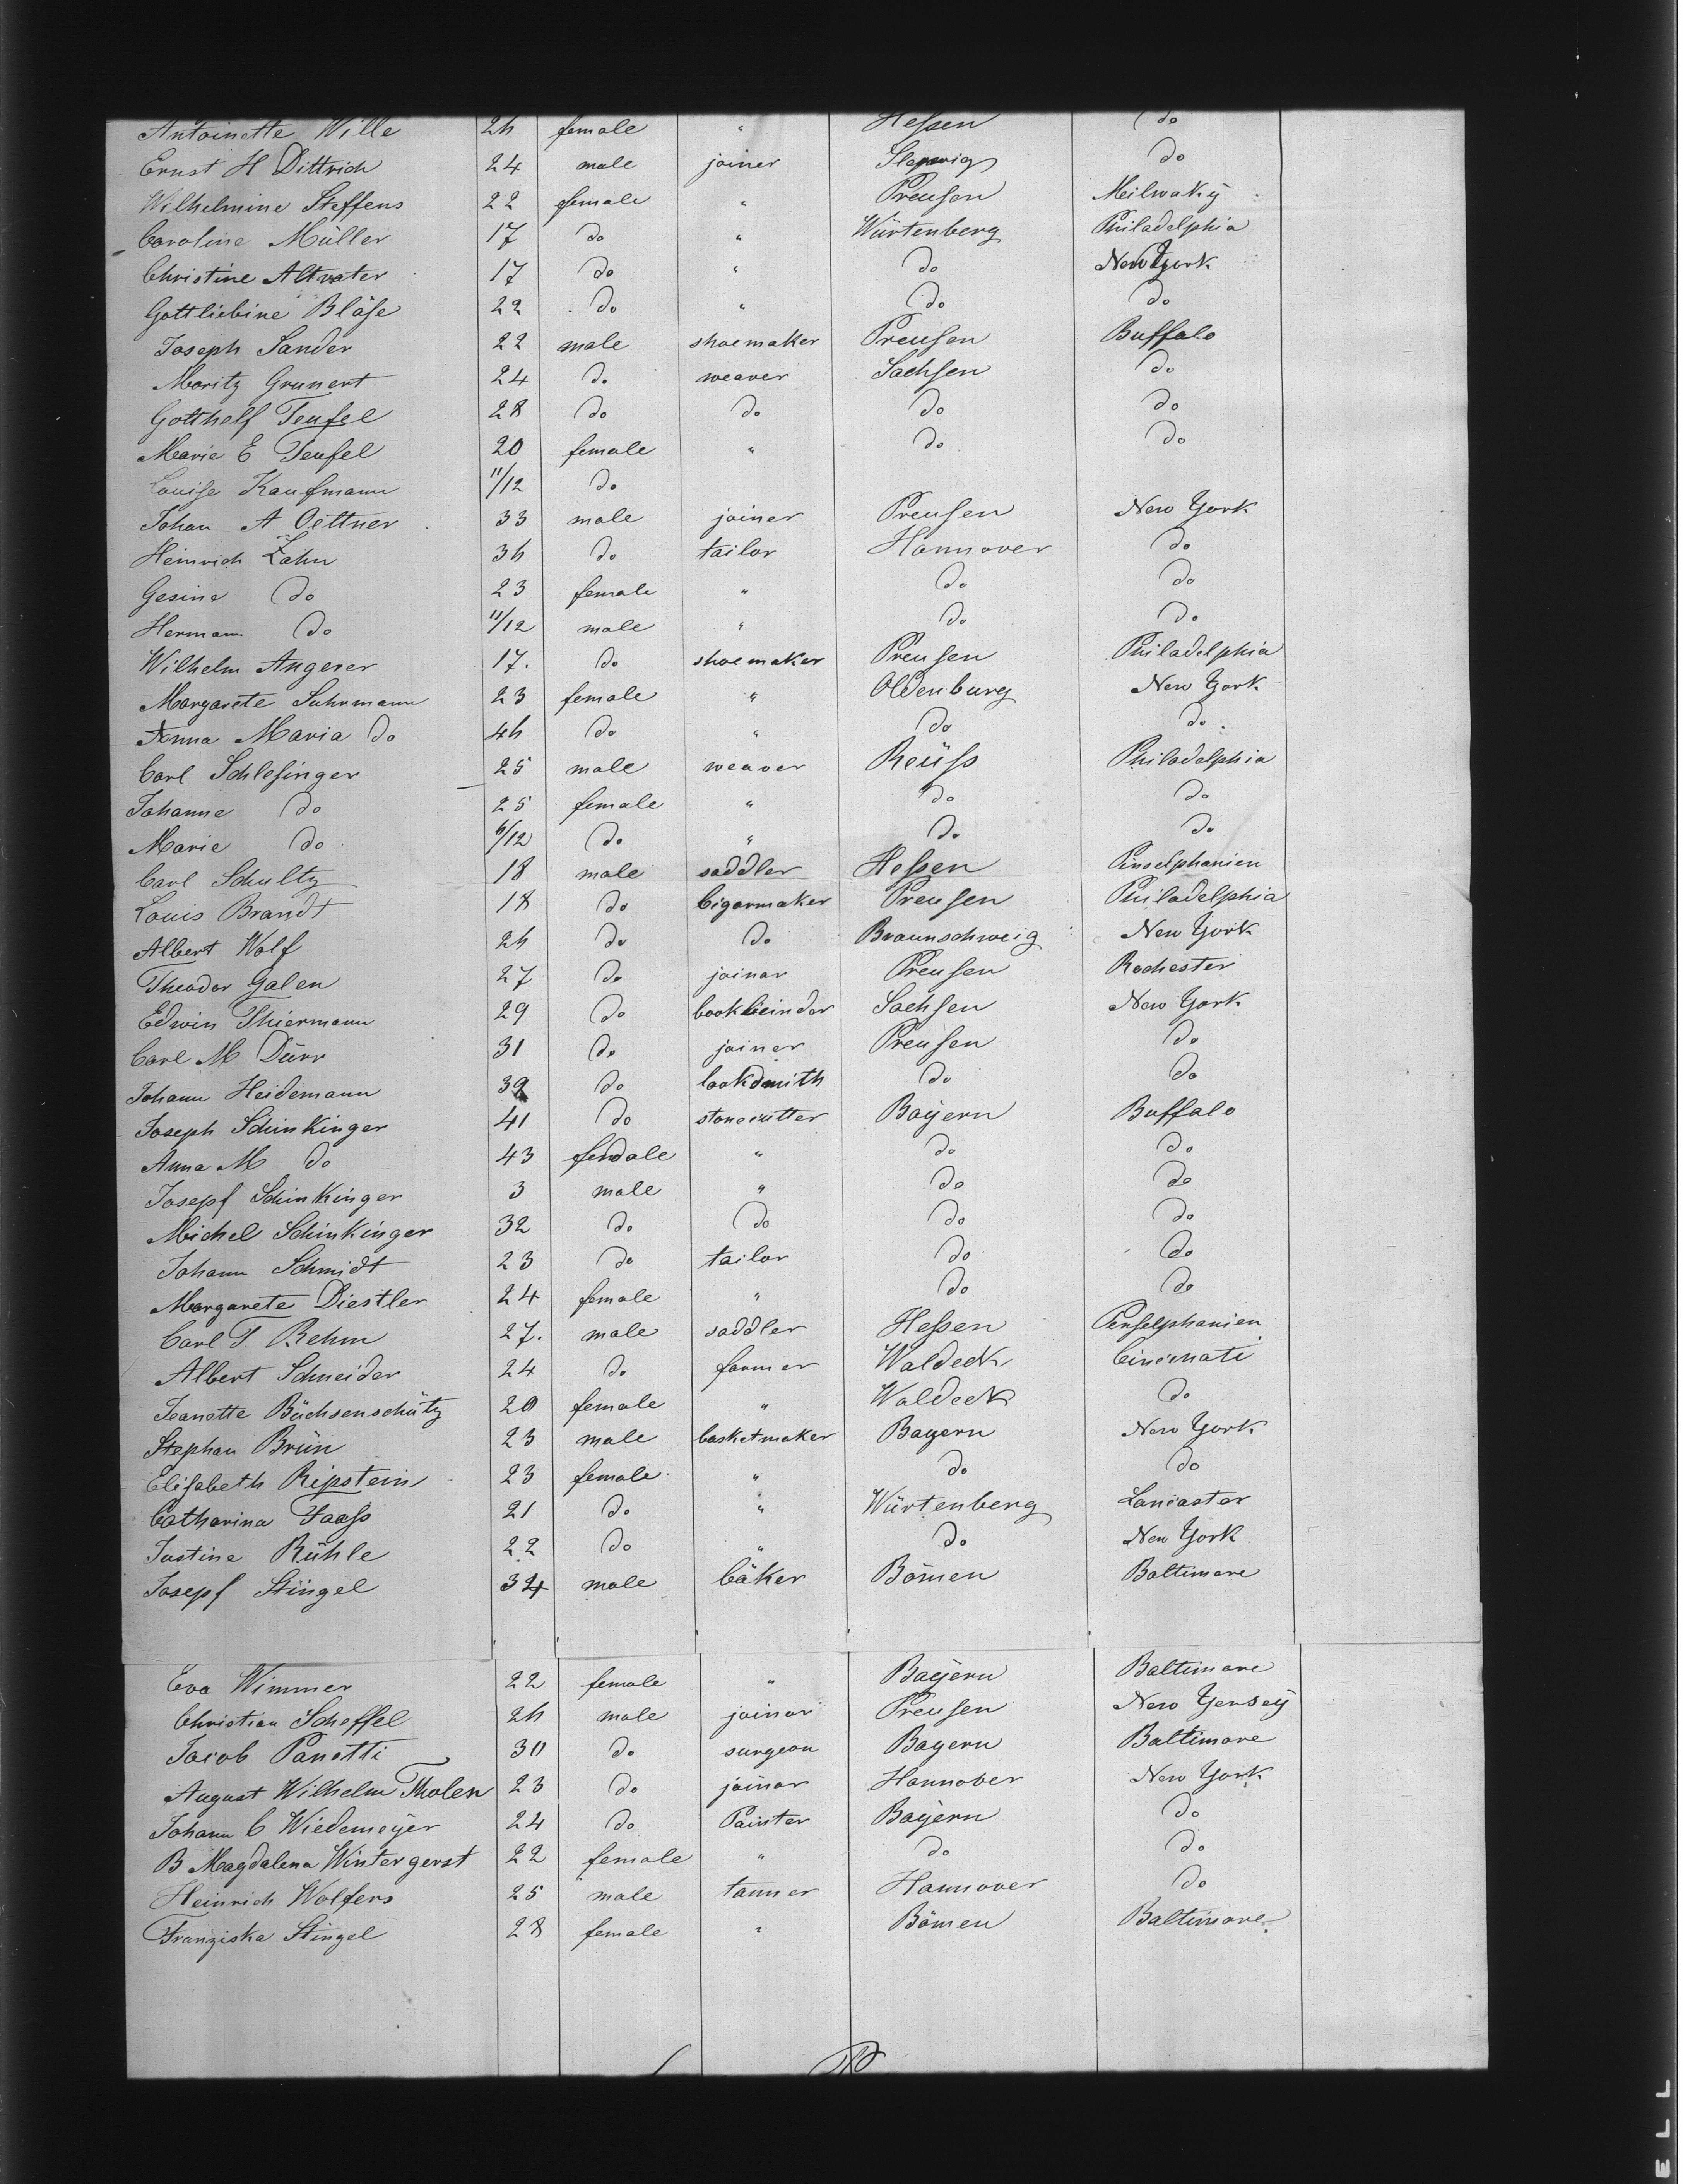 Antoinette Wille 26 female " Hessen do
Ernst H Dittrich 24 male joiner do
Wilhelmine Steffens 22 female " Preusen Meilwaky
Caroline Müller 17 do " Würtenberg Philadelphia
Christine Altvater 17 do " do New York
Gottliebine Bläse 22 do " do do
Joseph Sander 22 male shoemaker Preusen Buffalo
Moritz Grunert 24 do weaver Sachsen do
Gotthelf Teufel 28 do do do do
Marie E Teufel 20 female " do do
Louise Kaufmann 11/12 do
Johan A Oettner 33 male joiner Preusen New York
Heinrich Zahn 36 do tailor Hannover do
Gesine do 23 female " do do
Hermann do 11/12 male " do do
Wilhelm Angerer 17. do shoemaker Preusen Philadelphia
Margarete Suhrmann 23 female " Oldenburg New York
Anna Maria do 46 do " do do
Carl Schlesinger 25 male weaver Reüss Philadelphia
Johanne do 25 female " do do
Marie do 6/12 do " do do
Carl Schultz 18 male saddler Hessen Pinselphanien
Louis Brandt 18 do Cigarmaker Preusen Philadelphia
Albert Wolf 26 do do Braunschweig New York
Theodor Galen 27 do joiner Preusen Rochester
Edwin Thiermann 29 do bookbeinder Sachsen New York
Carl M Dürr 31 do joiner Preusen do
Johann Heidemann 39 do lookdmith do do
Joseph Schinkinger 41 do stonecutter Bayern Buffalo
Anna M do 43 female " do do
Josepf Schinkinger 3 male " do do
Michel Schinkinger 32 do do do do
Johann Schmidt 23 do tailor do do
Margarete Diestler 24 female " do do
Carl T Rehm 27. male saddler Hessen Penselphanien
Albert Schneider 24 do farmer Waldeck Cincinati
Jeanette Büchsenschütz 20 female " Waldeck do
Stephan Brün 23 male basketmaker Bayern New York
Elisabeth Ripstein 23 female " do do
Catharina Haass 21 do " Würtenberg Lancaster
Justine Rühle 22 do " do New York
Josepf Stingel 34 male bäker Bömen Baltimore
Eva Wimmer 22 female " Bayern Baltimore
Christian Scheffel 26 male joiner Preusen New Yersey
Jacob Panetti 30 do surgeon Bayern Baltimore
August Wilhelm Tholen 23 do joiner Hannover New York
Johann C Wiedemeyer 24 do Painter Bayern do
B Magdalena Wintergerst 22 female " do do
Heinrich Wolfers 25 male tanner Hannover do
Franziska Stingel 28 female " Bömen Baltimore
ELL